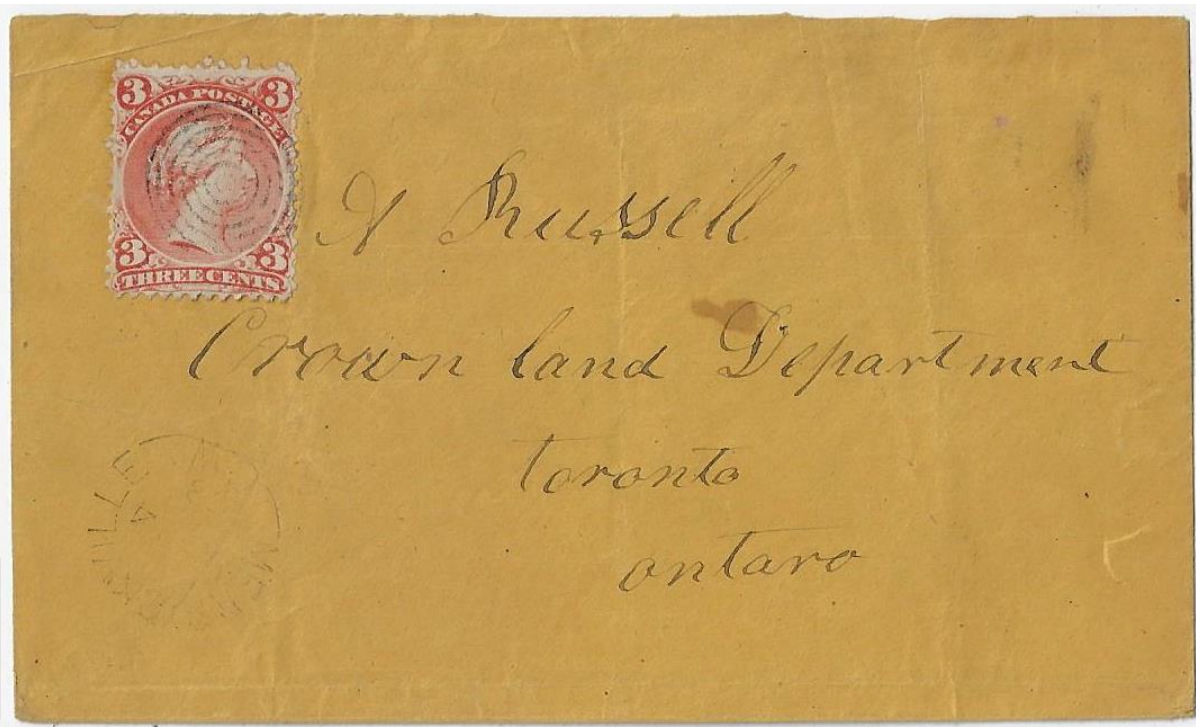 3 3
CANADA POSTAGE
3 3
THREE CENTS
A Russell
Crown land Department
toronto
ontaro